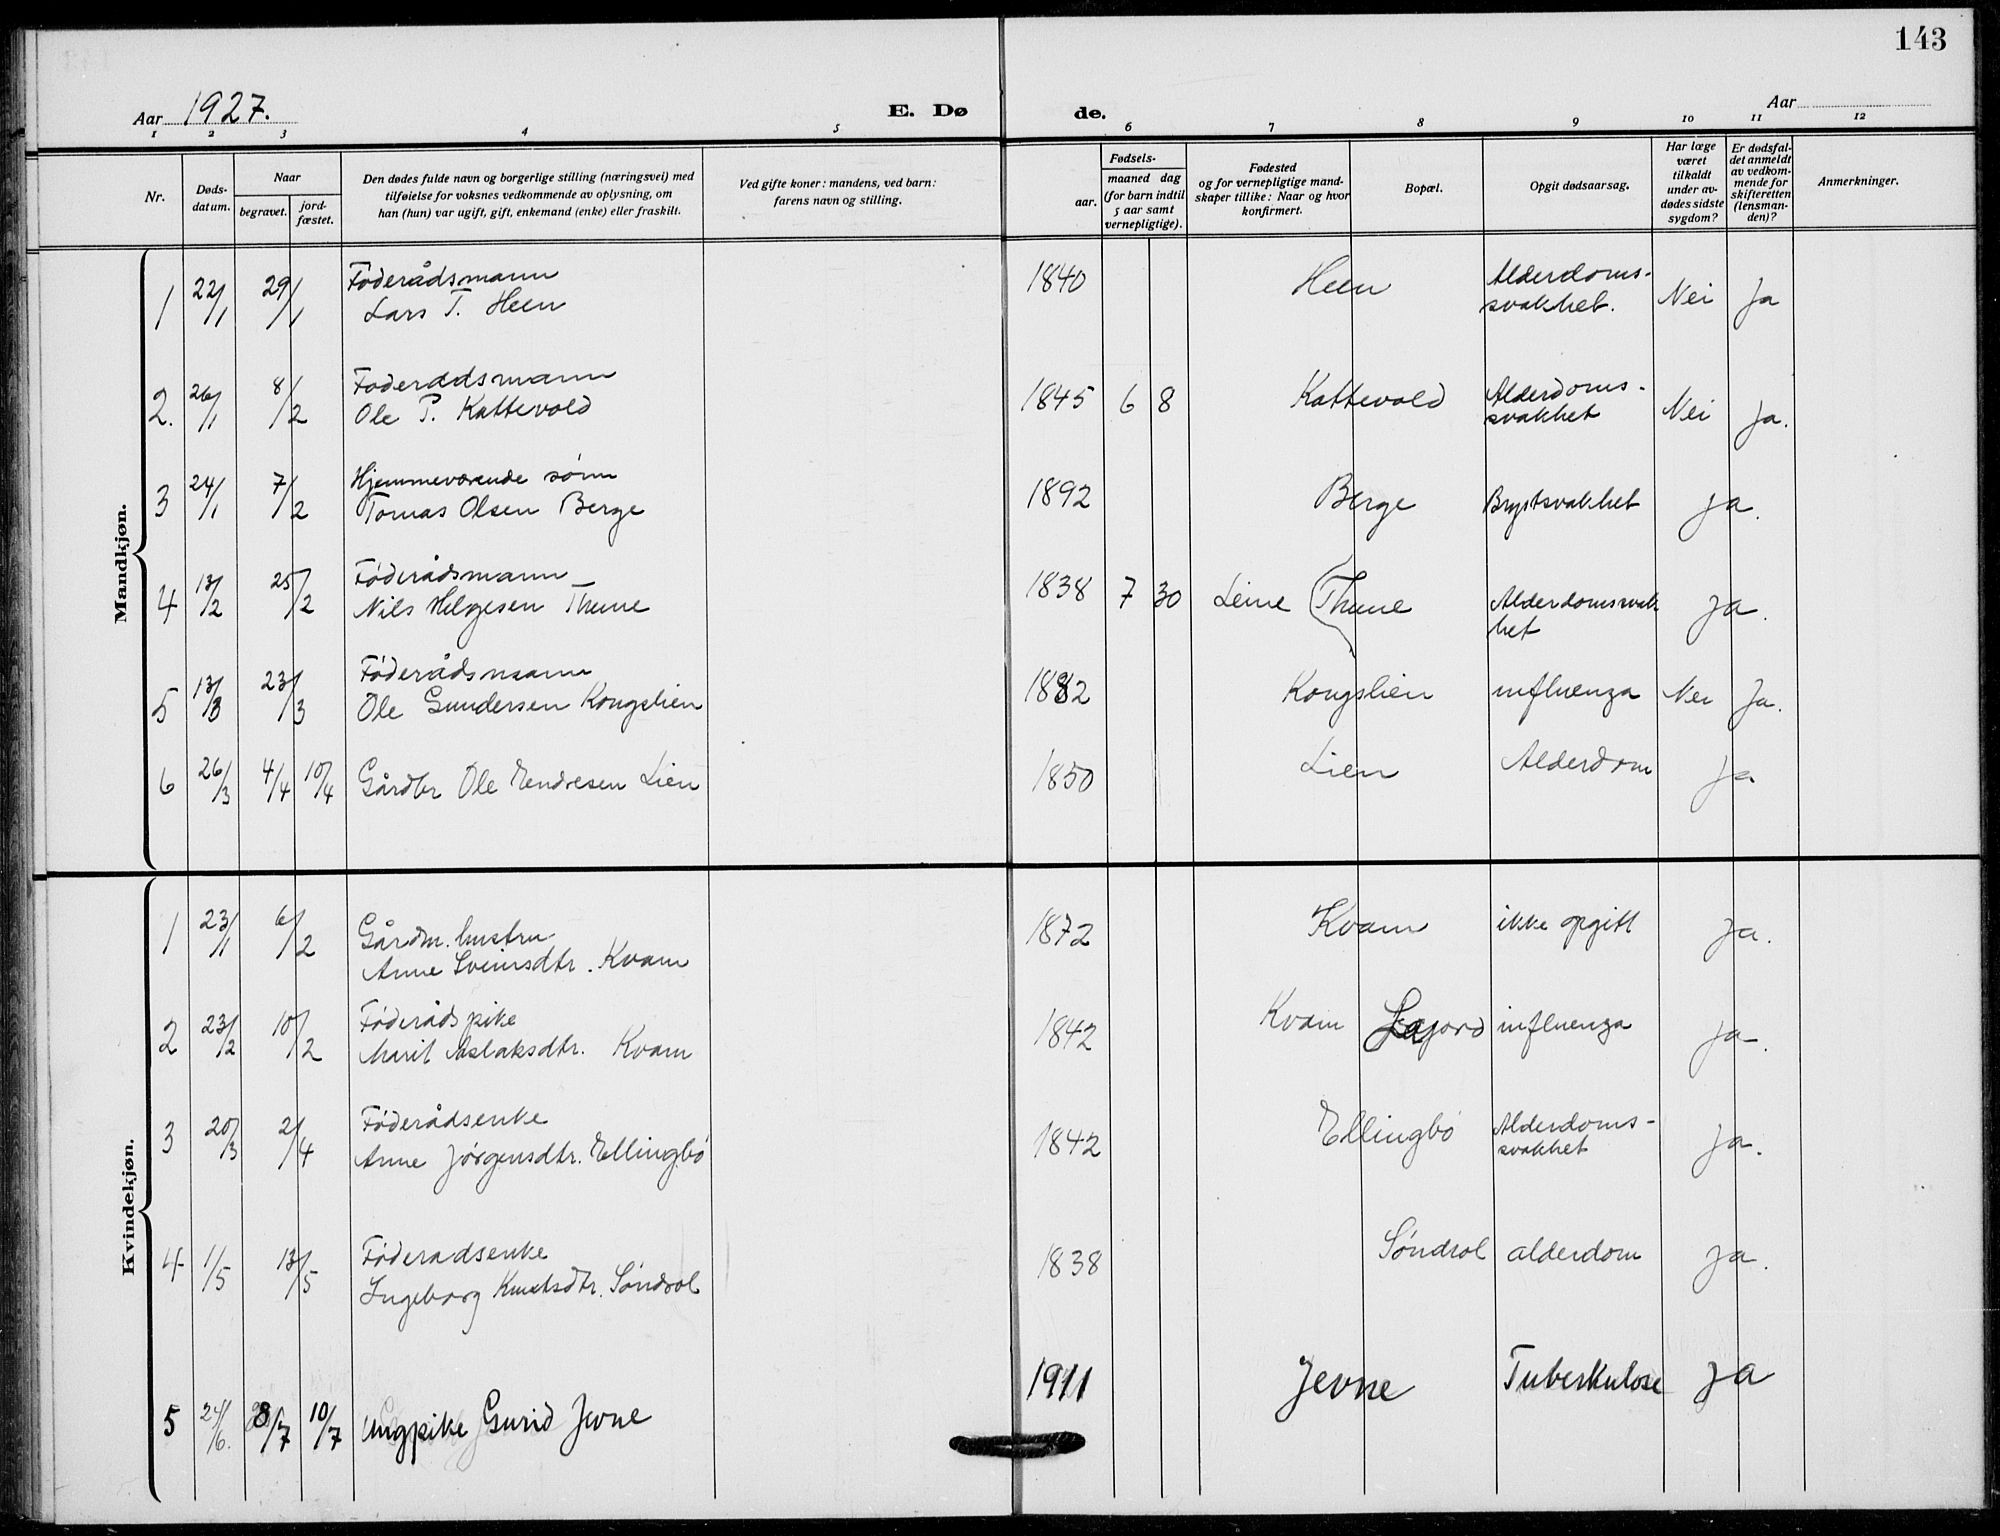 143
Aar 1927.
E. Døde.
Aar
1 2 3 4 5 6 7 8 9 10 11 12
Nr.
Døds-
datum.
Naar
begravet.
jord-
fæstet.
Den dødes fulde navn og borgerlige stilling (næringsvei) med
tilføielse for voksnes vedkommende av oplysning, om
han (hun) var ugift, gift, enkemand (enke) eller fraskilt.
Ved gifte koner: mandens, ved barn:
farens navn og stilling.
Fødsels-
aar.
maaned dag
(for barn indtil
5 aar samt
vernepligtige).
Fødested
og for vernepligtige mand-
skaper tillike: Naar og hvor
konfirmert.
Bopæl.
Opgit dødsaarsag.
Har læge
været
tilkaldt
under av-
dødes sidste
sygdom?
Er dødsfal-
det anmeldt
av vedkom-
mende for
skifteretten
(lensman-
den)?
Anmerkninger.
Mandkjøn.
1 22/1 29/1 Foderådsmann 1840 Heen Alderdoms-
Lars T. Heen svakhet. Nei Ja
2. 26/1 8/2 Foderaadsmann 1845 6 8 Kattevold Alderdoms-
Ole P. Kattevold svakhet Nei Ja.
3 24/1 7/2 Hjemmeværende sönn 1892 Berge Brystsvakhet Ja.
Tomas Olsen Berge
4 13/2 25/2 Föderådsmann 1838 7 30 Leine Thune Alderdomssvak
Nils Helgesen Thune het Ja.
5 13/3 23/3 Föderådsmann Kongslien influenza Nei Ja.
Ole Gundersen Kongslien
6 26/3 4/4 10/4 Gårdbr Ole Endresen Lien 1850 Lien Alderdom Ja
Kvindekjøn.
1 23/1 6/2 Gårdm. hustru 1872 Kvam ikke opgitt Ja.
Anne Sveinsdtr. Kvam
2 23/2 10/2 Föderådspike 1842 Kvam influenza Ja.
Marit Aslaksdtr. Kvam
3 20/3 2/4 Föderådsenke 1842 Ellingbö Alderdoms-
Anne Jörgensdtr. Ellingbö svakhet Ja.
4 1/5 13/5 Föderadsenke 1838 Söndrol alderdom Ja.
Ingeborg Knutsdtr. Söndrol
5 24/6. 8/7 10/7 Ungpike Gurid Jevne 1911 Jevne Tuberkulose Ja